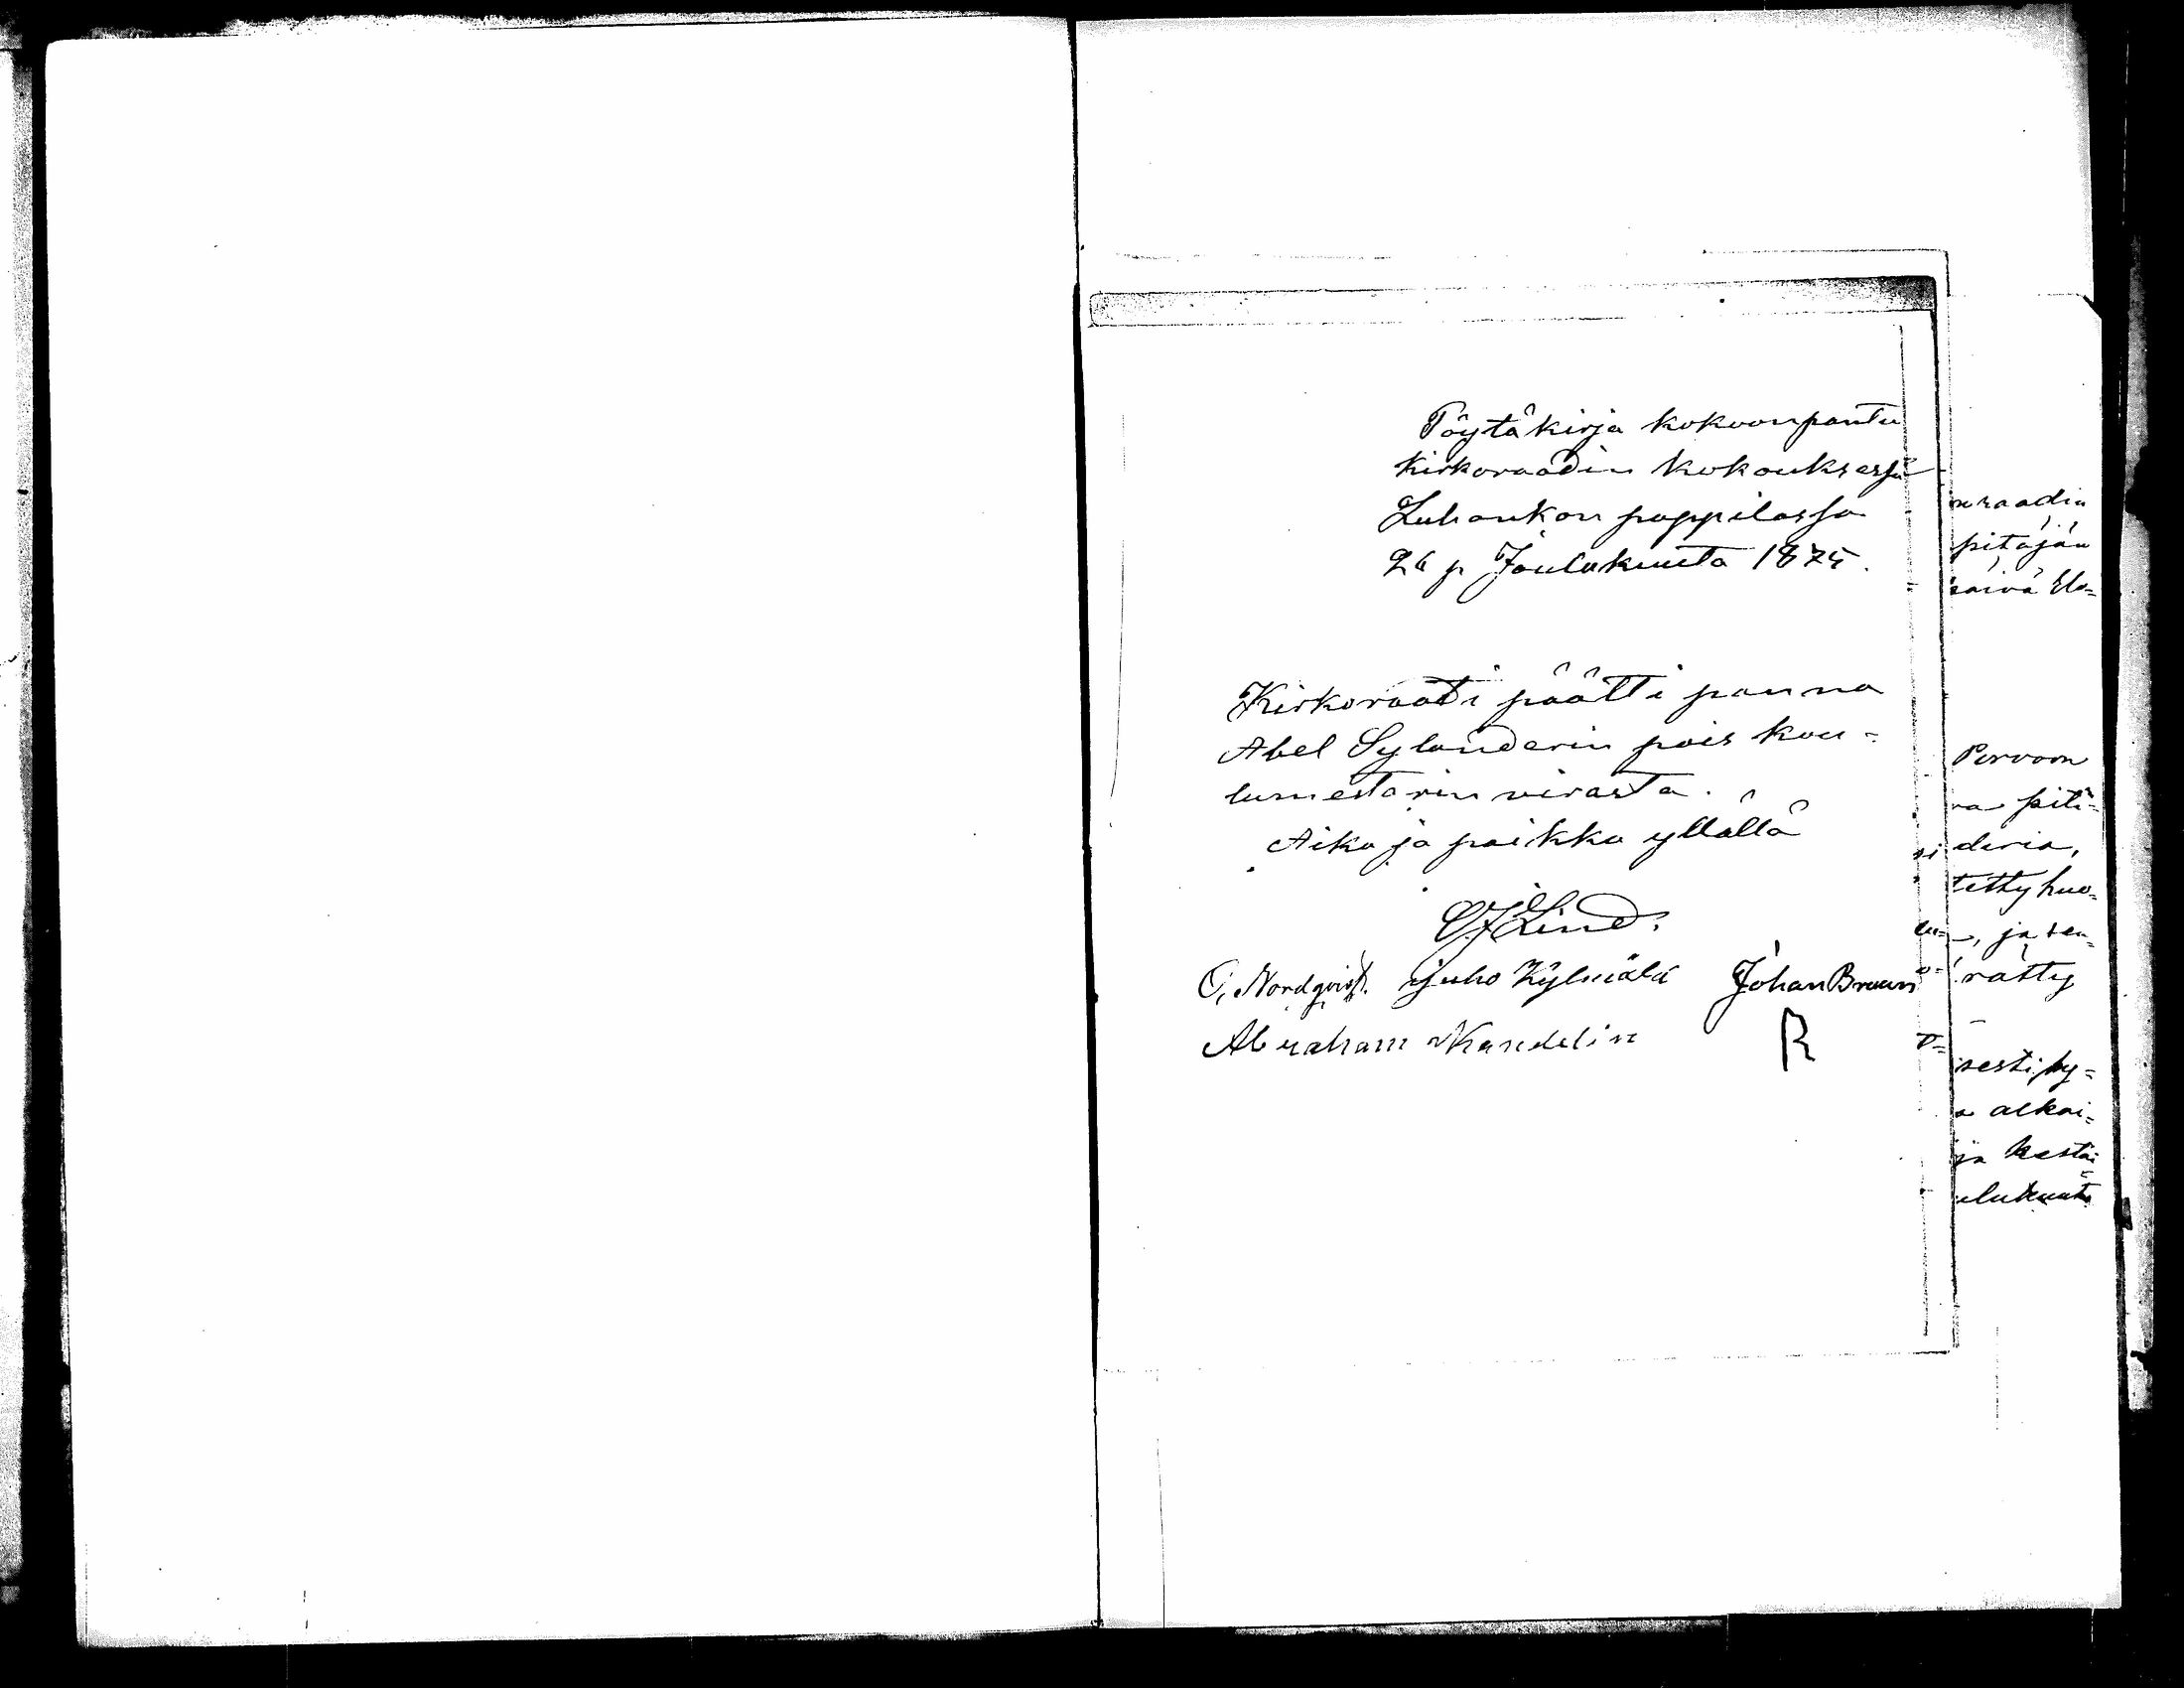 Pöytäkirja kokoonpantu
Kirkoraadin kokouksessa
Luhankan pappilassa
26 p Joulukuuta 1875.
Kirkoraati päätti panna
Abel Sylanderin pois kou=
lumestarin virasta.
Aika ja paikka yllällä
CJ Lind.
O, Nordqvist. Juho Kylmälä Johan Bruun
Abraham Mandelin R
raadin
pitäjän
Elo=
Porvoon
piti=
deria,
tetty huo=
, ja sen=
rätty
sesti hy=
alkai=
ja kestäi=
ulukuuta